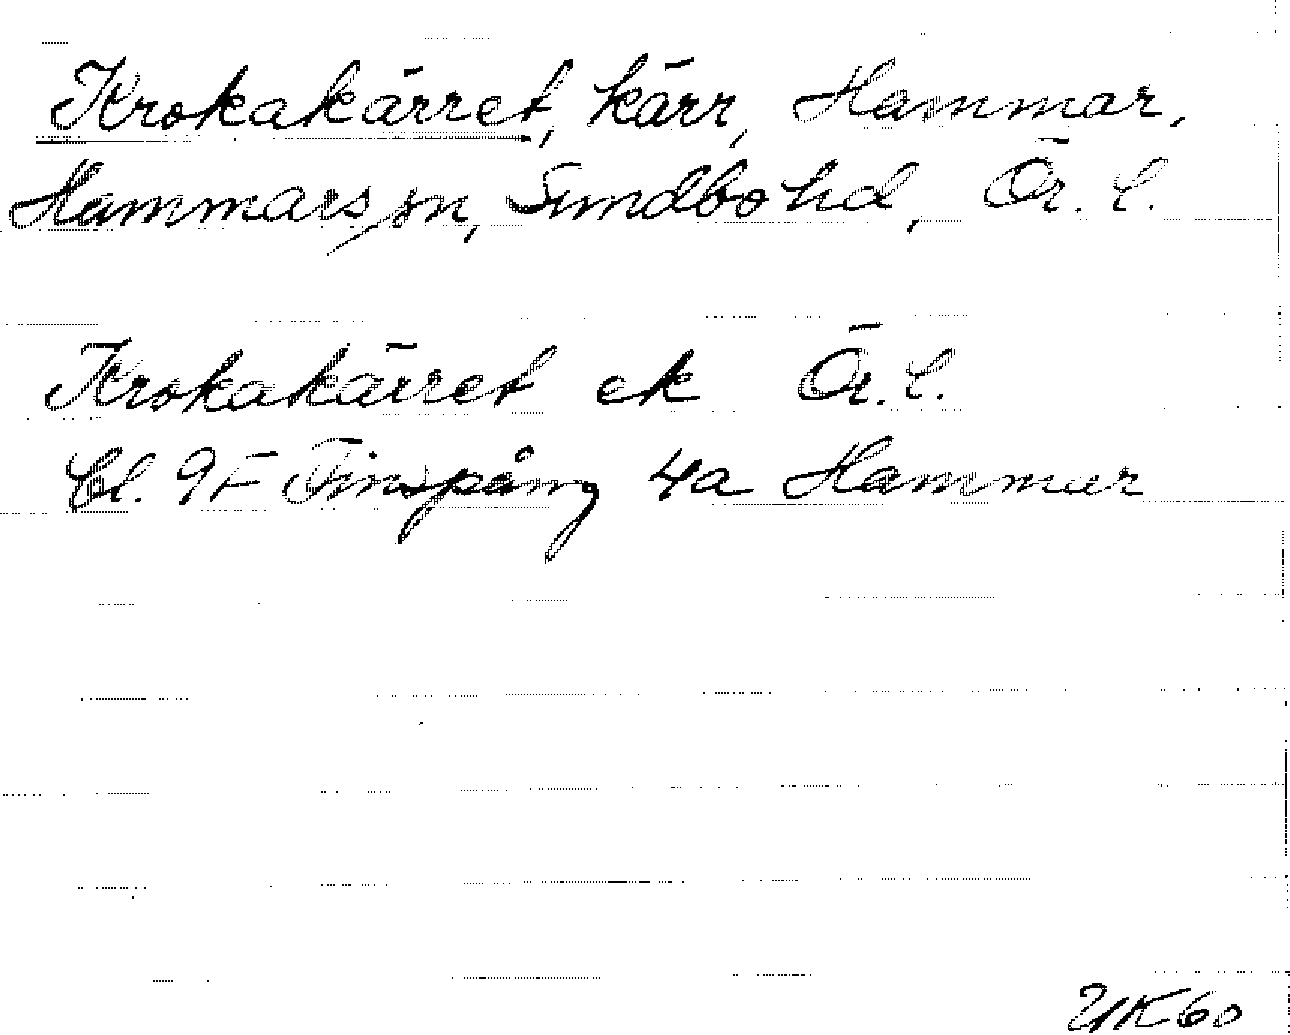 Krokakärret, kärr, Hammar,
Hammars sn, Sundbo hd, Ör. l.
Krokakärret ek Ör. l.
Bl. 9F Finspång 4a Hammar
UK60